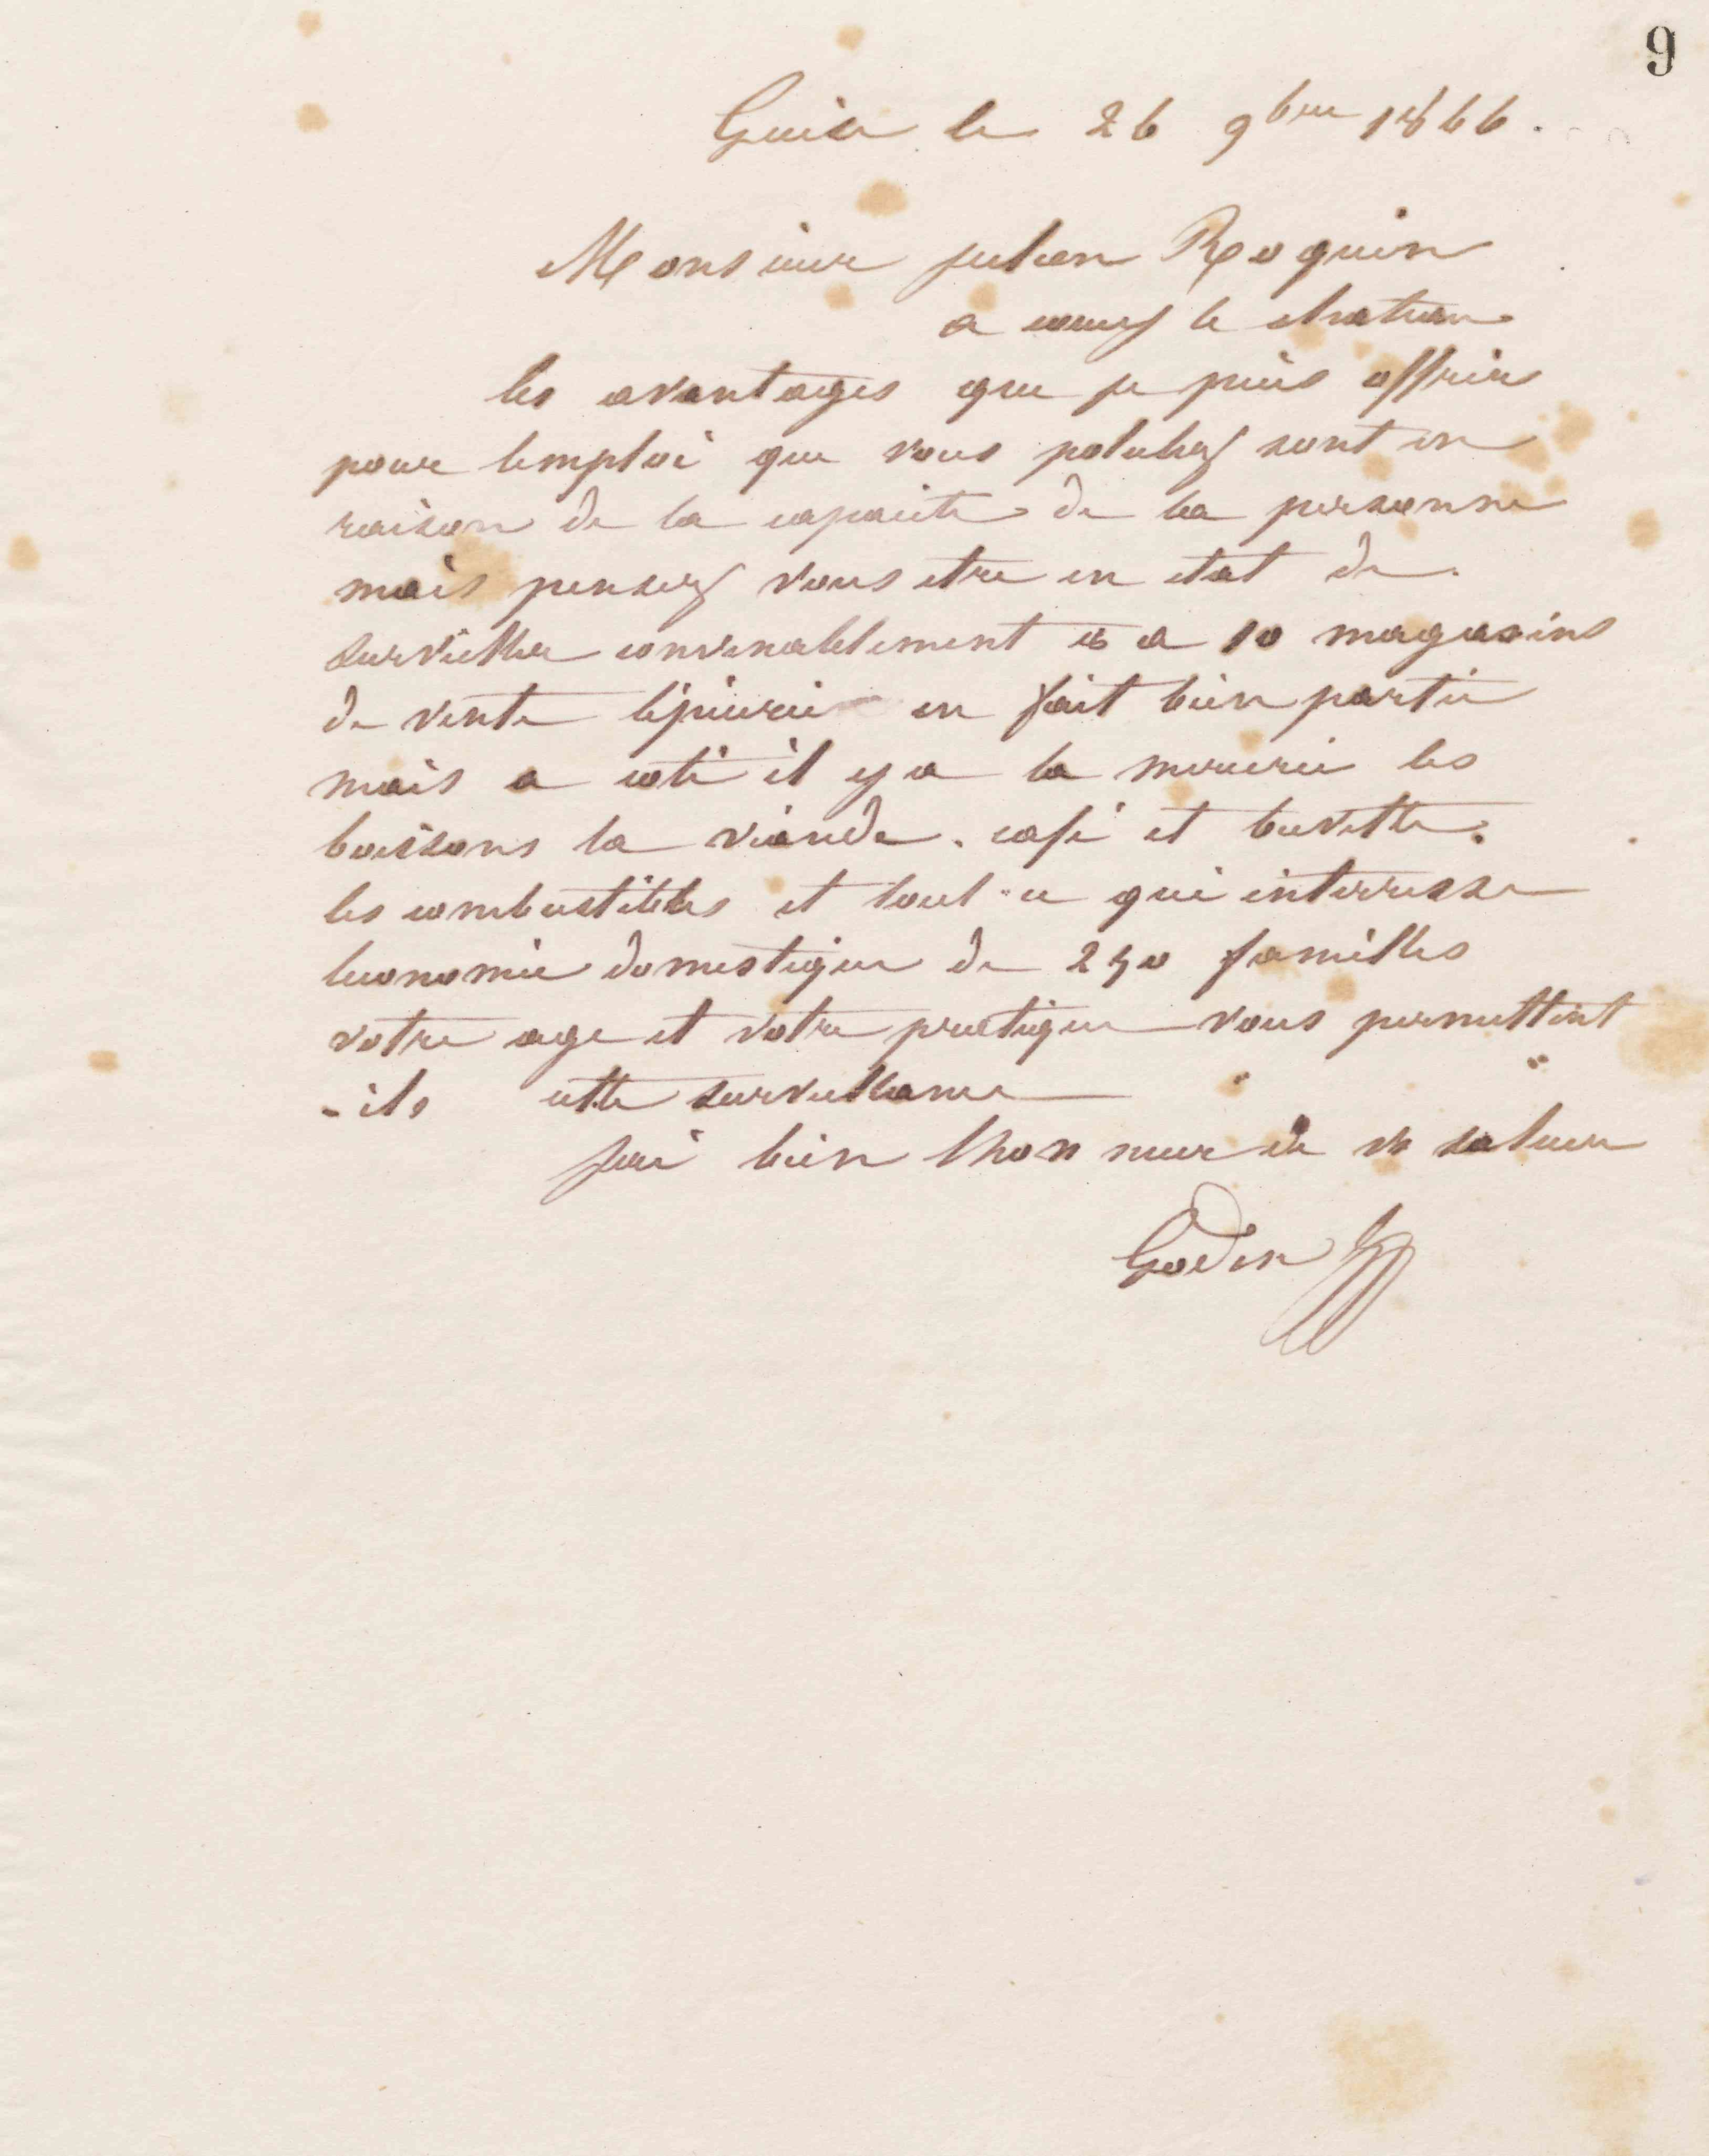 9
Guise le 26 9bre 1866.
Monsieur Julien Roguin
a coucy le chateau
les avantages que je puis offrir
pour lemploi que vous sont en
raison de la capacité de la personne
mais pensez vous etre en etat de
surveiller convenablement 8 a 10 magasins
de vente lépicerie en fait bien partie
mais a coté il y a la mercerie les
boissons la viande. café et buvette.
les combustibles et tout ce qui interresse
leconomie domestique de 250 familles
votre age et votre pratique vous permettent
-ils cette surveillance
jai bien lhonneur de vs saluer
Godin